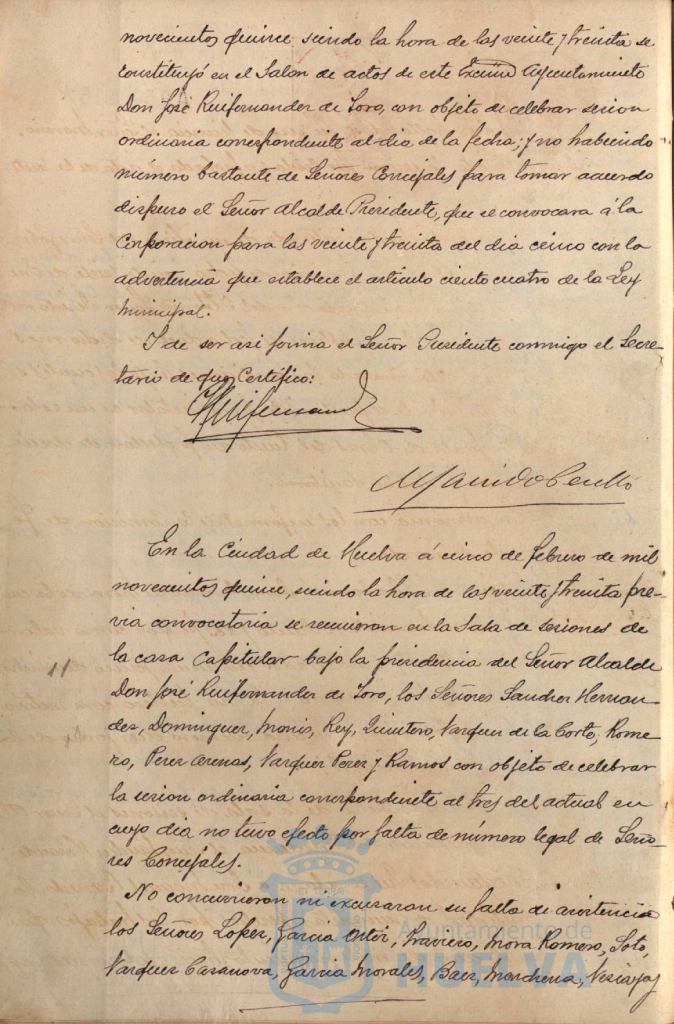 novecientos quince, siendo la hora de las veinte y treinta se
constituyó en el Salon de actos de este Excmo Ayuntamiento
Don José Ruifernandez de Toro, con objeto de celebrar sesion
ordinaria correspondiente al dia de la fecha; y no habiendo
número bastante de Señores Concejales para tomar acuerdo
dispuso el Señor Alcalde Presidente, que se convocara á la
Corporacion para las veinte y treinta del dia cinco con la
advertencia que establece el artículo ciento cuatro de la Ley
Municipal.
Y de ser asi firma el Señor Presidente conmigo el Secre-
tario de que Certifico:
En la Ciudad de Huelva á cinco de febrero de mil
novecientos quince, siendo la hora de las veinte y treinta pre-
via convocatoria se reunieron en la Sala de sesiones de
11
la casa Capitular bajo la presidencia del Señor Alcalde
Don José Ruifernandez de Toro, los Señores Sanchez Hernan-
dez, Dominguez, Monis, Rey, Quintero, Vazquez de la Corte, Rome-
ro, Perez Arenas, Vazquez Perez y Ramos con objeto de celebrar
la sesion ordinaria correspondiente al tres del actual en
cuyo dia no tuvo efecto por falta de número legal de Seño-
res Concejales.
No concurrieron ni excusaron su falta de asistencia
los Señores Lopez, Garcia Ortiz, Traviesso, Mora Romero, Soto,
Vazquez Casanova, Garcia Morales, Baez, Marchena,
Ayuntamiento de
HUELVA